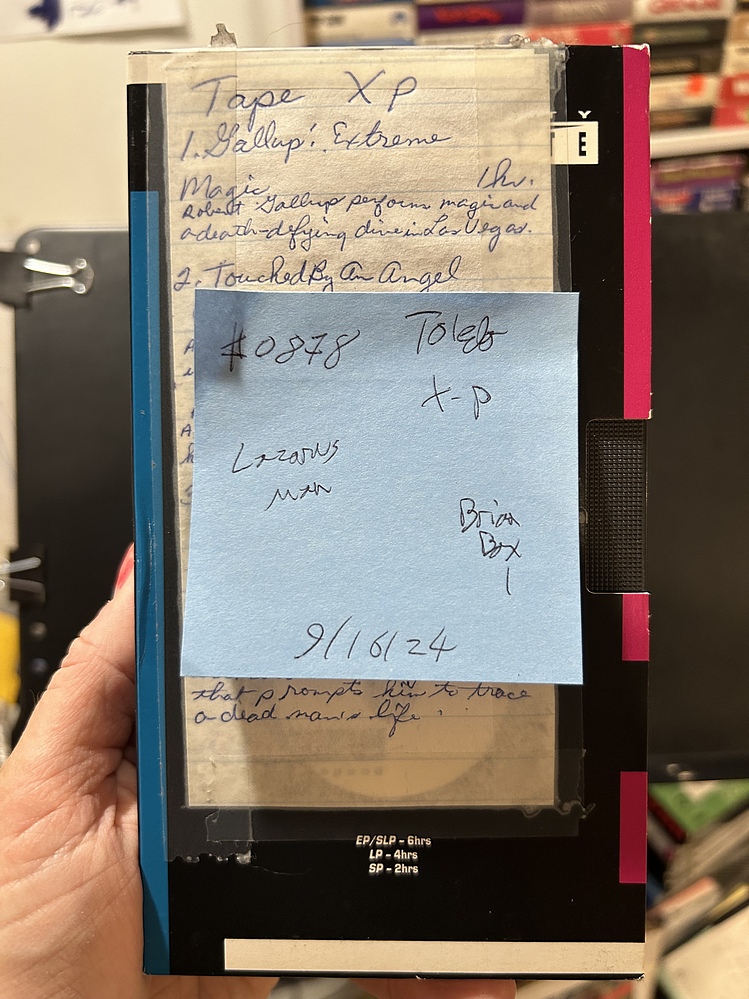 Tape XP
1. Gallup: Extreme
Magic 1hr.
Robert Gallup performs magic and
a death-defying dive in Las Vegas.
2. Touched By An Angel
#0878 Toledo
X-P
Lazarus
Man
Brian
Box
1
9/16/24
that prompts him to trace
a dead man's life.
Y
E
EP/SLP - 6hrs
LP - 4hrs
SP - 2hrs